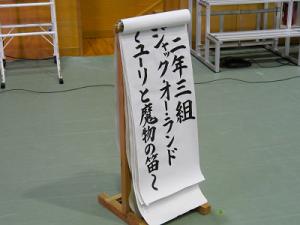 二年三組
ジャック・オー・ランド
～ユーリと魔物の笛～